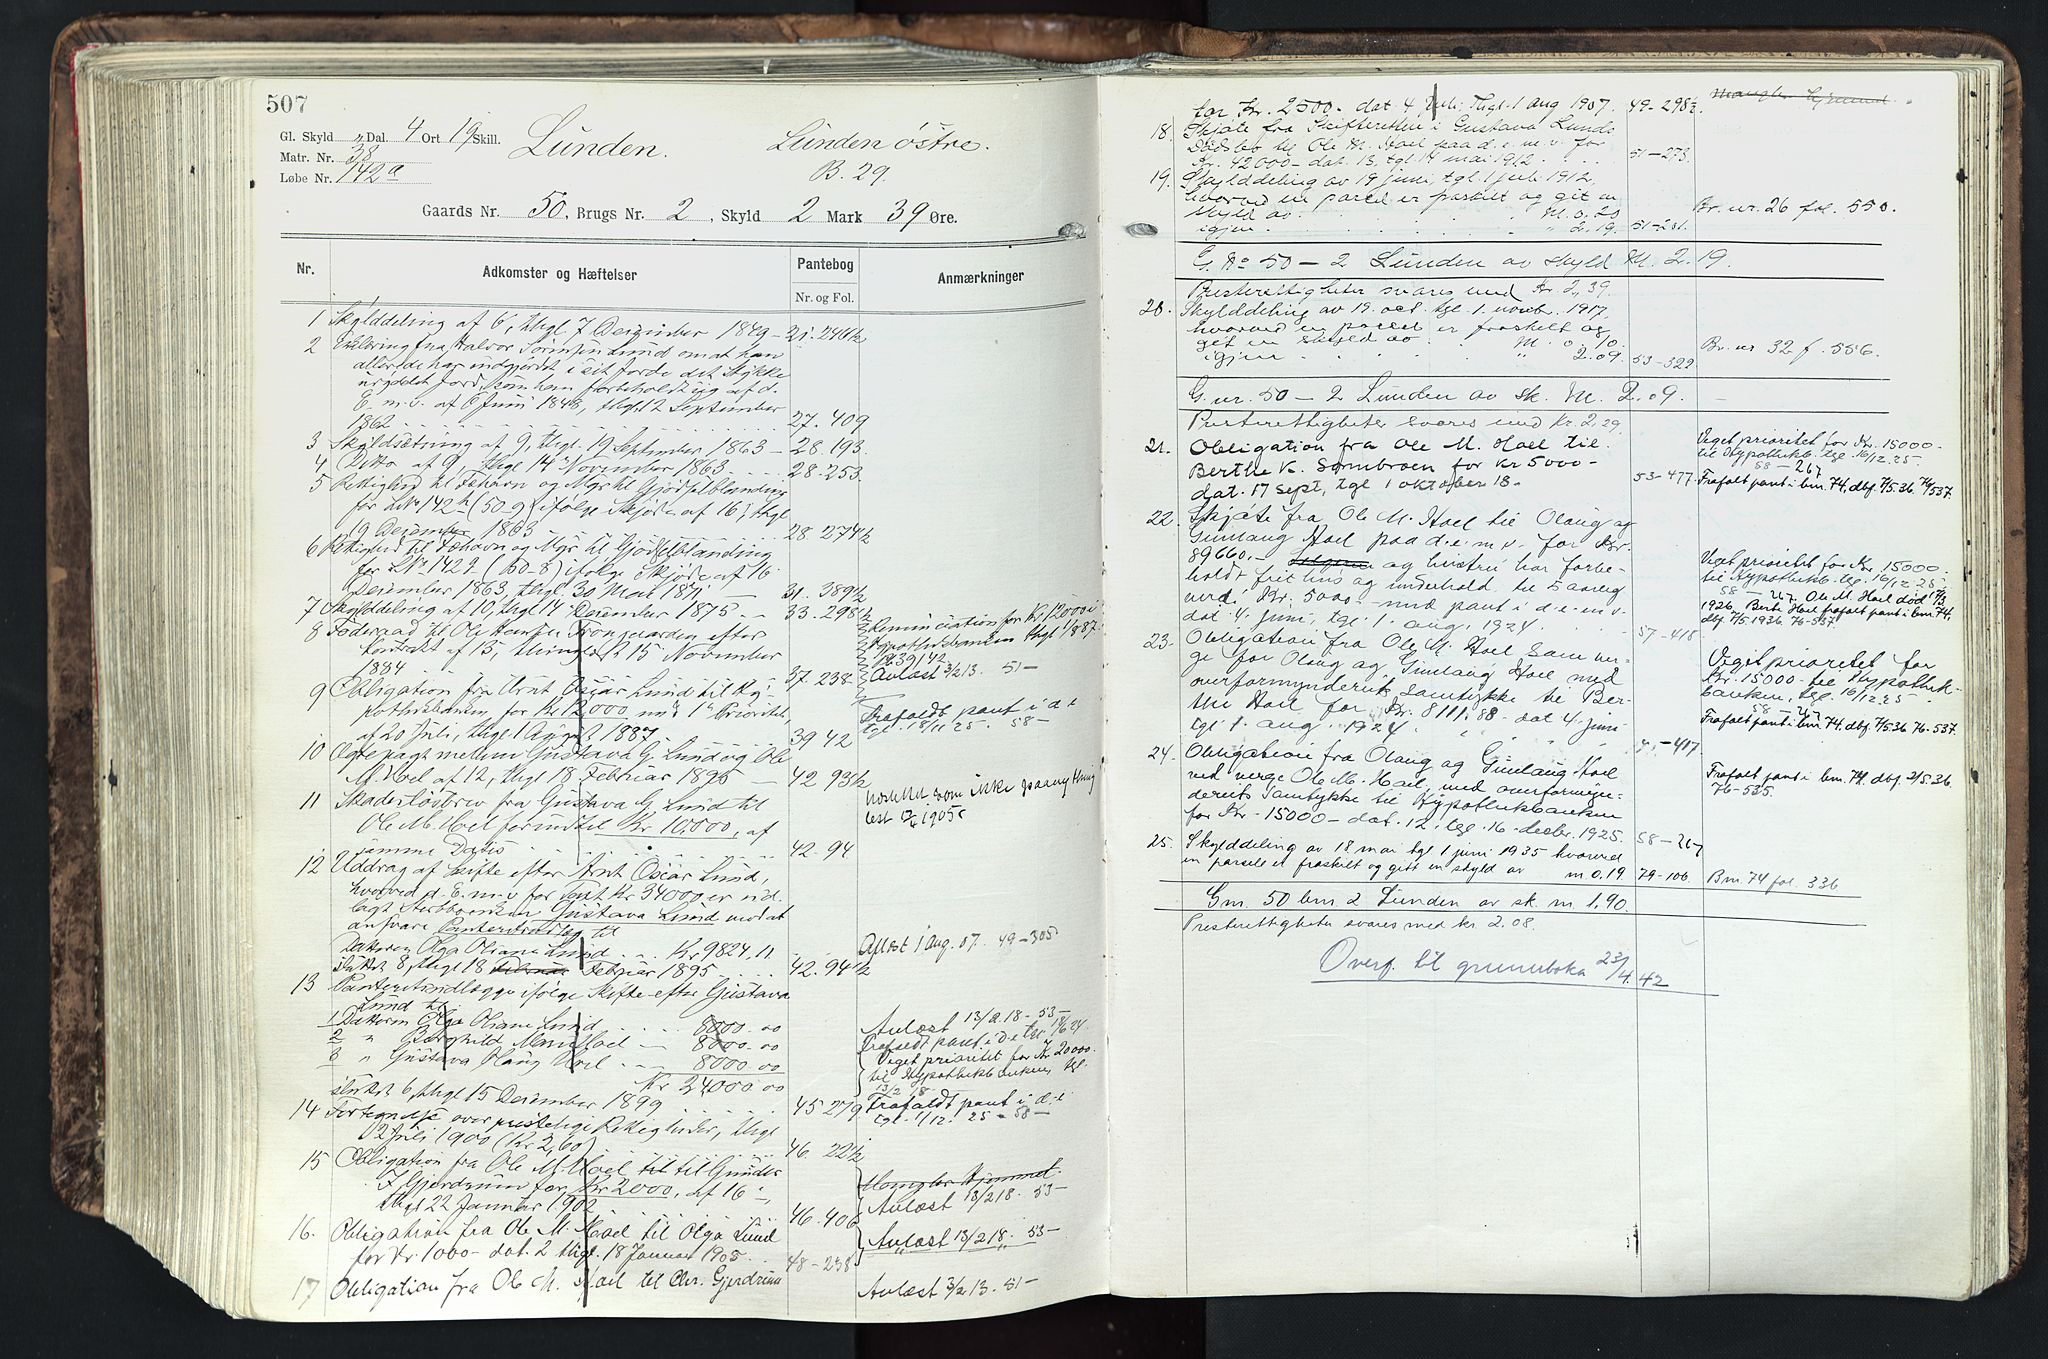 507
Gl. Skyld " Dal. 4 Ort 19 Skill.
Matr. Nr. 38
Løbe Nr. 142a
Lunden.
Lunden østre.
B. 29
Gaards Nr. 50, Brugs Nr. 2, Skyld 2 Mark 39 Øre.
Nr. Adkomster og Hæftelser Pantebog Anmærkninger
Nr. og Fol.
1 Skylddeling af 6, thgl. 7 Dezember 1849 - 21. 246½
2 Erklæring fra Halvor Sørensen Lund om at han
allerede har indgjærdet i sit Jorde det Stykke
urøddet Jord, som han forbeholdt sig af d.
E. m. v. af 6 Juni 1848, thgl. 12 September
1862 27. 409
3 Skyldsætning af 9, thgl. 19 September 1863 - 28. 193.
4 Ditto af 9, thgl 14 November 1863 28-253.
5 Rettighed til Fæhavn og Myr til Gjødselblanding
for LNo 142h (50-9) ifølge Skjøde af 16, thgl
9 Dezember 1863 28 274½
6 Rettighed til Fæhavn og Myr til Gjødselblanding
for LNo 1422 (50-8) ifølge Skjøde af 16
Dezember 1863, thgl. 30 Mai 1871 - 31. 389½
7 Skylddeling af 10, thgl 14 Dezember 1875 - 33. 298½
8 Føderaad til Ole Hansen Trongaarden efter
Kontrakt af 15, thinglæst 15 November
1884 37. 238
Renunciation for Kr. 12000 i
Hypothekbanken thgl 1/8 87.
39/42
Avlæst 3/2 13. 51-
9 Obligation fra Arnt Oscar Lund til Hy-
pothekbanken for Kr 12,000 med 1ste Prioritet,
af 20 Juli, thgl. 1 August 1887. 39 42
Frafaldt pant i d e
tgl. 18/11 25. 58-
10 Ægtepagt mellem Gustava G. Lund og Ole
M. Hoel af 12, thgl 18 Februar 1895 - 42. 93½
11 Skadesløsbrev fra Gustava G. Lund til
Ole M. Hoel for indtil Kr 10.000, af
samme Dato 42. 94
som ikke
1905
12 Uddrag af Skifte efter Arnt Oscar Lund,
hvorved d. E. m. v for Taxt Kr 34000 er ud-
lagt Stervboenken Gustava Lund mod at
ansvare Panteudlæg til
Datteren Olga Oliane Lund Kr 9824,11
sluttet 8, thgl 18 Februar 1895 42. 94½
Aflæst 1 Aug. 07. 49-305
13 Panteudlægge ifølge Skifte efter Gustava
Lund til
1 Datteren Olga Oliane Lund 8000.00
2 " Borghild Marie Hoel - 8000.00
3 " Gustava Olaug Hoel - 8000.00
Kr 24000 00
sluttet 6, thgl 15 Dezember 1899 45 279
Avlæst 13/2 18 - 53-
Frafaldt pant i d e tgl. 18/6 24.
Veget prioritet for Kr 20000.
til Hypothekbanken, tgl.
13/2 18.
Frafaldt pant i d. e
tgl. 1/12. 25 - 58-
14 Fortegnelse over prestelige Rettigheder, thgl
2 Juli 1900 (Kr 2,60) 46. 22½
15 Obligation fra Ole M. Hoel til Gunder
F. Gjerdrum for Kr 2000, af 16,
thgl 22 Januar 1902 46. 406
Mangler Hjemmel.
Avlæst 13/2 18. 53-
16. Obligation fra Ole M. Hoel til Olga Lund
for Kr. 1000- dat. 2 thgl. 18 Januar 1905. 48-238
Avlæst 13/2 18. 53-
17 Obligation fra Ole M. Hoel til Chr. Gjerdrum
Avlæst 3/2 13. 51-
for Kr. 2500- dat 4 Juli, thgl. 1 aug 1907. 49-298½.
18. Skjøte fra Skifteretten i Gustava Lunds
Dødsbo til Ole M. Hoel paa d. e. m. v. for
Kr. 42000- dat. 13, tgl. 14 mai 1912. 51-273.
19. Skylddeling av 19 juni, tgl. 1 juli 1912,
hvorved en parcel er fraskilt og git en
skyld av M. 0.20
igjen " 2.19. 51-281.
Br. nr. 26 fol. 550.
G. No 50-2 Lunden av skyld M. 2.19.
Presterettigheter svares med Kr. 2,39.
20. Skylddeling av 19. oct. tgl. 1. novbr. 1917,
hvorved en parcel er fraskilt og
git en skyld av M. 0.10.
igjen " 2.09. 53-322
Br. nr 32 f. 556.
G. nr. 50-2 Lunden av sk. M. 2.09.
Presterettigheter svares med Kr. 2,29.
21. Obligation fra Ole M. Hoel til
Berthe K. Sørmbroen for Kr 5000-
dat. 17 sept, tgl 1 oktober 18- 53-477
Veget prioritet for Kr. 15000-
til Hypothekb. tgl. 16/12.25.
58-267
Frafalt pant i bnr. 74, dbf. 7/5.36. 76/537.
22. Skjøte fra Ole M. Hoel til Olaug og
Gunlaug Hoel paa d. e. m. v. for Kr.
89660.- og hustru har forbe-
holdt frit hus og underhold til 5 aarlig
verdi Kr. 5000- med pant i d. e. m. v.
dat. 4. juni, tgl. 1. aug. 1924. 57-416
Veget prioritet for Kr. 15000-
til Hypothekb. tgl. 16/12 25.
58-267. Ole M. Hoel død
1926. Berte Hoel frafalt pant i bnr. 74,
dbf 7/5.1936. 76-537.
23. Obligation fra Ole M. Hoel som ver-
ge for Olaug og Gunlaug Hoel med
overformynderiets samtykke til Ber-
the Hoel for Kr. 8111.88- dat 4. juni
tgl 1. aug. 1924. -417
Veget prioritet for
Kr. 15000- til Hypothek-
banken, tgl. 16/12 25.
58-267
Frafalt pant i bnr 74, dbf. 7/5.36 76-537.
24. Obligation fra Olaug og Gunlaug Hoel
ved verge Ole M. Hoel, med overformyn-
deriets samtykke til Hypothekbanken
for Kr. 15000- dat. 12, tgl. 16. decbr. 1925. 58-267
Frafalt pant i bnr. 74. dbf. 2/5.36.
76-535.
25. Skylddeling av 18 mai tgl 1 juni 1935 hvorved
en parsel er fraskilt og gitt en skyld av m 0.19 79-106
Bnr. 74 fol. 336
Gnr. 50 bnr 2 Lunden av sk. m. 1,90.
Presterettigheter svares med kr. 2.08.
Overf. til grunnboka 23/4.42